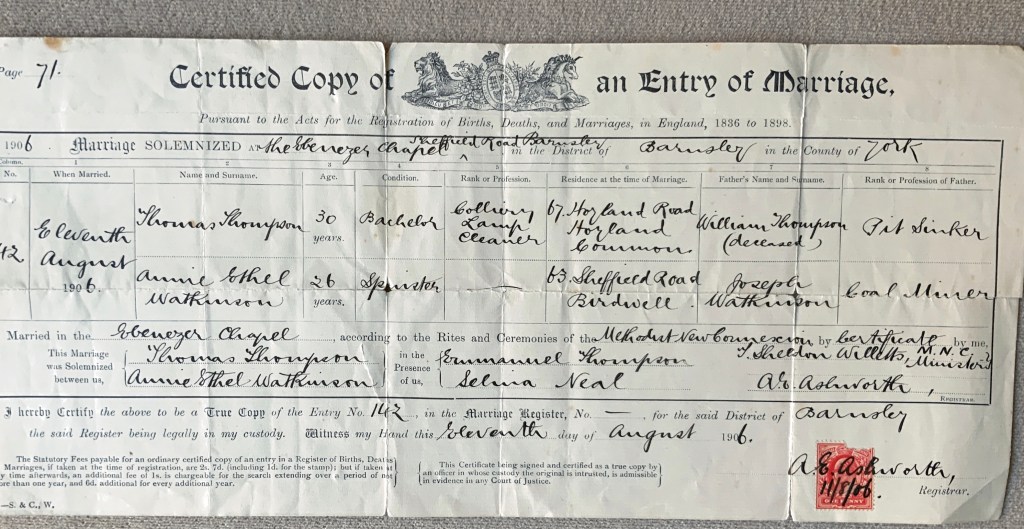 Page 71.
Certified Copy of an Entry of Marriage,
Pursuant to the Acts for the Registration of Births, Deaths, and Marriages, in England, 1836 to 1898.
1906 Marriage SOLEMNIZED AT the Ebenezer Chapel Sheffield Road Barnsley in the District of Barnsley in the County of York
1 2 3 4 5 6 7 8
No. When Married. Name and Surname. Age. Condition. Rank or Profession. Residence at the time of Marriage. Father's Name and Surname. Rank or Profession of Father.
42 Eleventh August 1906.
Thomas Thompson 30 years. Bachelor Colliery Lamp Cleaner 67. Hoyland Road Hoyland Common William Thompson (deceased) Pit Sinker
Annie Ethel Watkinson 26 years. Spinster — 63. Sheffield Road Birdwell. Joseph Watkinson Coal Miner
Married in the Ebenezer Chapel, according to the Rites and Ceremonies of the Methodist New Connexion by Certificate by me,
This Marriage was Solemnized between us, Thomas Thompson in the Presence of us, Emmanuel Thompson T. Sheldon Willetts, M.N.C. Minister
Annie Ethel Watkinson Selina Neal A.E. Ashworth, Registrar.
I hereby Certify the above to be a True Copy of the Entry No. 142, in the Marriage Register, No. —, for the said District of Barnsley
the said Register being legally in my custody. Witness my Hand this Eleventh day of August 1906.
The Statutory Fees payable for an ordinary certified copy of an entry in a Register of Births, Deaths
Marriages, if taken at the time of registration, are 2s. 7d. (including 1d. for the stamp); but if taken at
y time afterwards, an additional fee of 1s. is chargeable for the search extending over a period of not
ore than one year, and 6d. additional for every additional year.
This Certificate being signed and certified as a true copy by
an officer in whose custody the original is intrusted, is admissible
in evidence in any Court of Justice.
A.E. Ashworth,
11/8/06.
Registrar.
—S. & C., W.